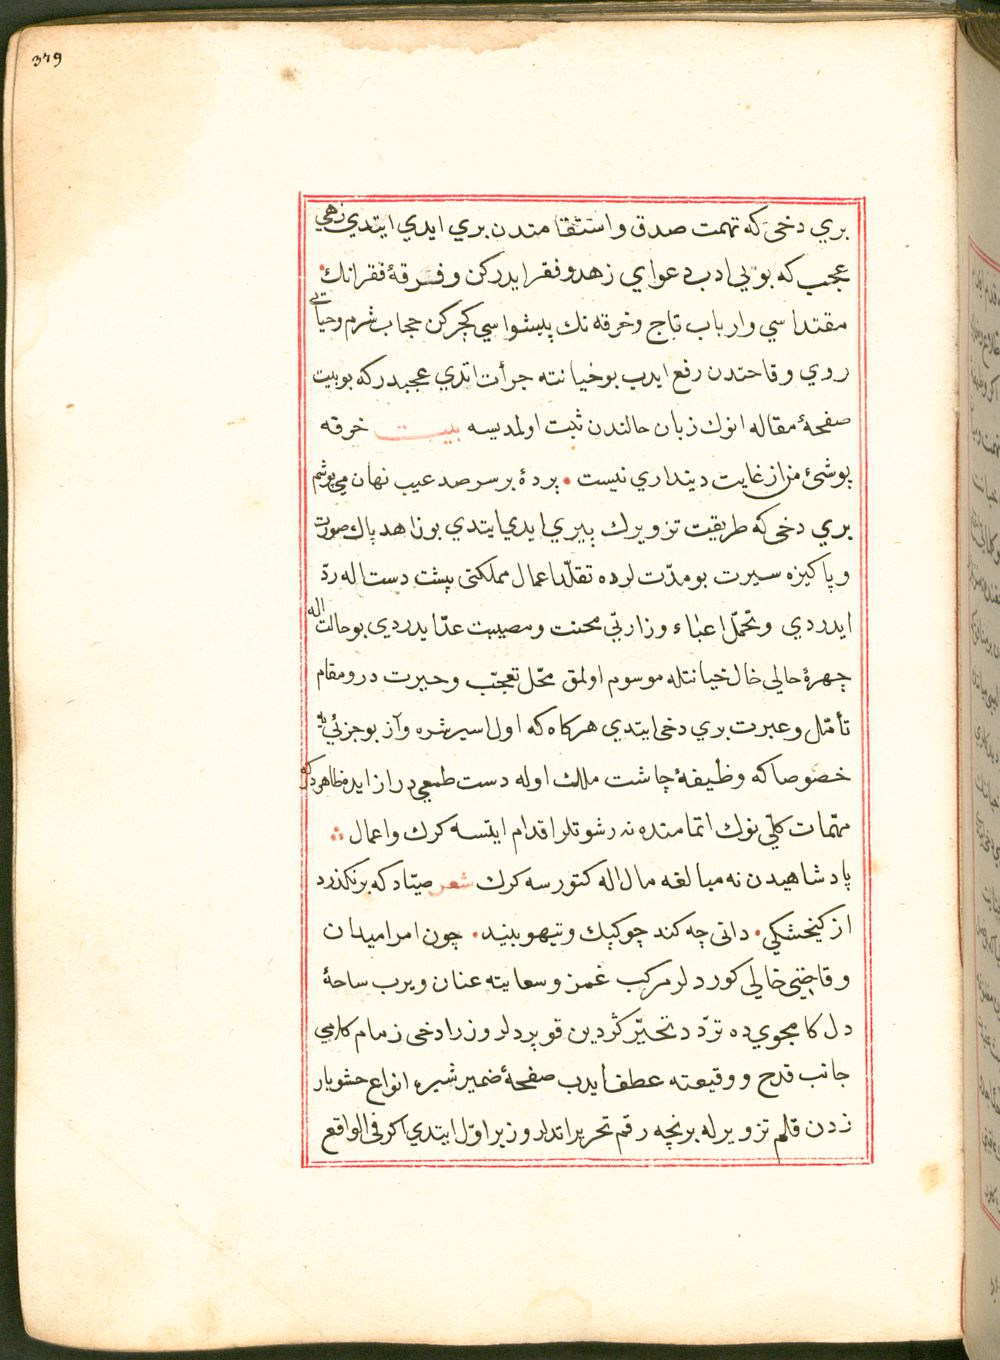 379
بري دخى كه تهمت صدق و استقامتدن بري ايدي ايتدي زهي
عجب كه بو بي ادب دعواي زهد و فقر ايدركن و فرقۀ فقرانك
مقتداسي و ارباب تاج و خرقه نك پيشواسي كچركن حجاب شرم و حيايي
روي وقاحتدن رفع ايدب بو خيانته جرأت اتدي عجبدر كه بو بيت
صفحۀ مقاله انوك زبان حالندن ثبت اولمديسه بيت خرقه
پوشئ من از غايت دينداري نيست • پردۀ بر سر صد عيب نهان مي پوشم
بري دخى كه طريقت تزويرك پيري ايدي ايتدي بو زاهد پاك صورت
و پاكيزه سيرت بو مدّت لرده تقلّد اعمال مملكتى پشت دست اله ردّ
ايدردي و تحمّل اعباء وزارتي محنت و مصيبت عدّ ايدردي بو حالت اله
چهرۀ حالي خال خيانتله موسوم اولمق محّل تعجّب و حيرت در و مقام
تأمّل و عبرت بري دخى ايتدي هركاه كه اول اسير شره و آز بو جزئي يه
خصوصا كه وظيفۀ چاشت ملك اوله دست طمعي دراز ايده ظاهردر كه
مهّمات كلّي نوك اتمامنده نه رشوتلر اقدام ايتسه كرك و اعمال
پادشاهيدن نه مبالغه مال اله كتورسه كرك شعر صيّاد كه برنكذرد
از كنجشكي • داني چه كند چو كبك و تيهو بيند • چون امرا ميدان
وقاضيي خالي كورديلر مركب غمز و سعايته عنان ويرب ساحۀ
دل كامجوي ده تردّد و تحيّر كردين قوپرديلر وزرا دخى زمام كلامي
جانب قدح و وقيعته عطف ايدب صفحۀ ضمير شيره انواع حشو يار
زدن قلم تزوير له برنچه رقم تحرير اتديلر وزير اوّل ايتدي اكر فى الواقع